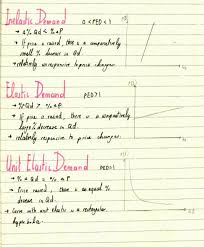 Inelastic Demand 0 < PED < 1
→ % Qd < % ΔP
→ If price is raised, there is a comparatively
small % decrease in Qd.
→ relatively unresponsive to price changes.
Elastic Demand PED > 1
→ % Qd > % ΔP
→ If price is raised, there is a comparatively
large % decrease in Qd.
→ relatively responsive to price changes.
Unit Elastic Demand PED = 1
→ % Qd = % ΔP
→ Price raised, there is an equal %
decrease in Qd.
→ Curve with unit elastic is a rectangular
hyperbola.